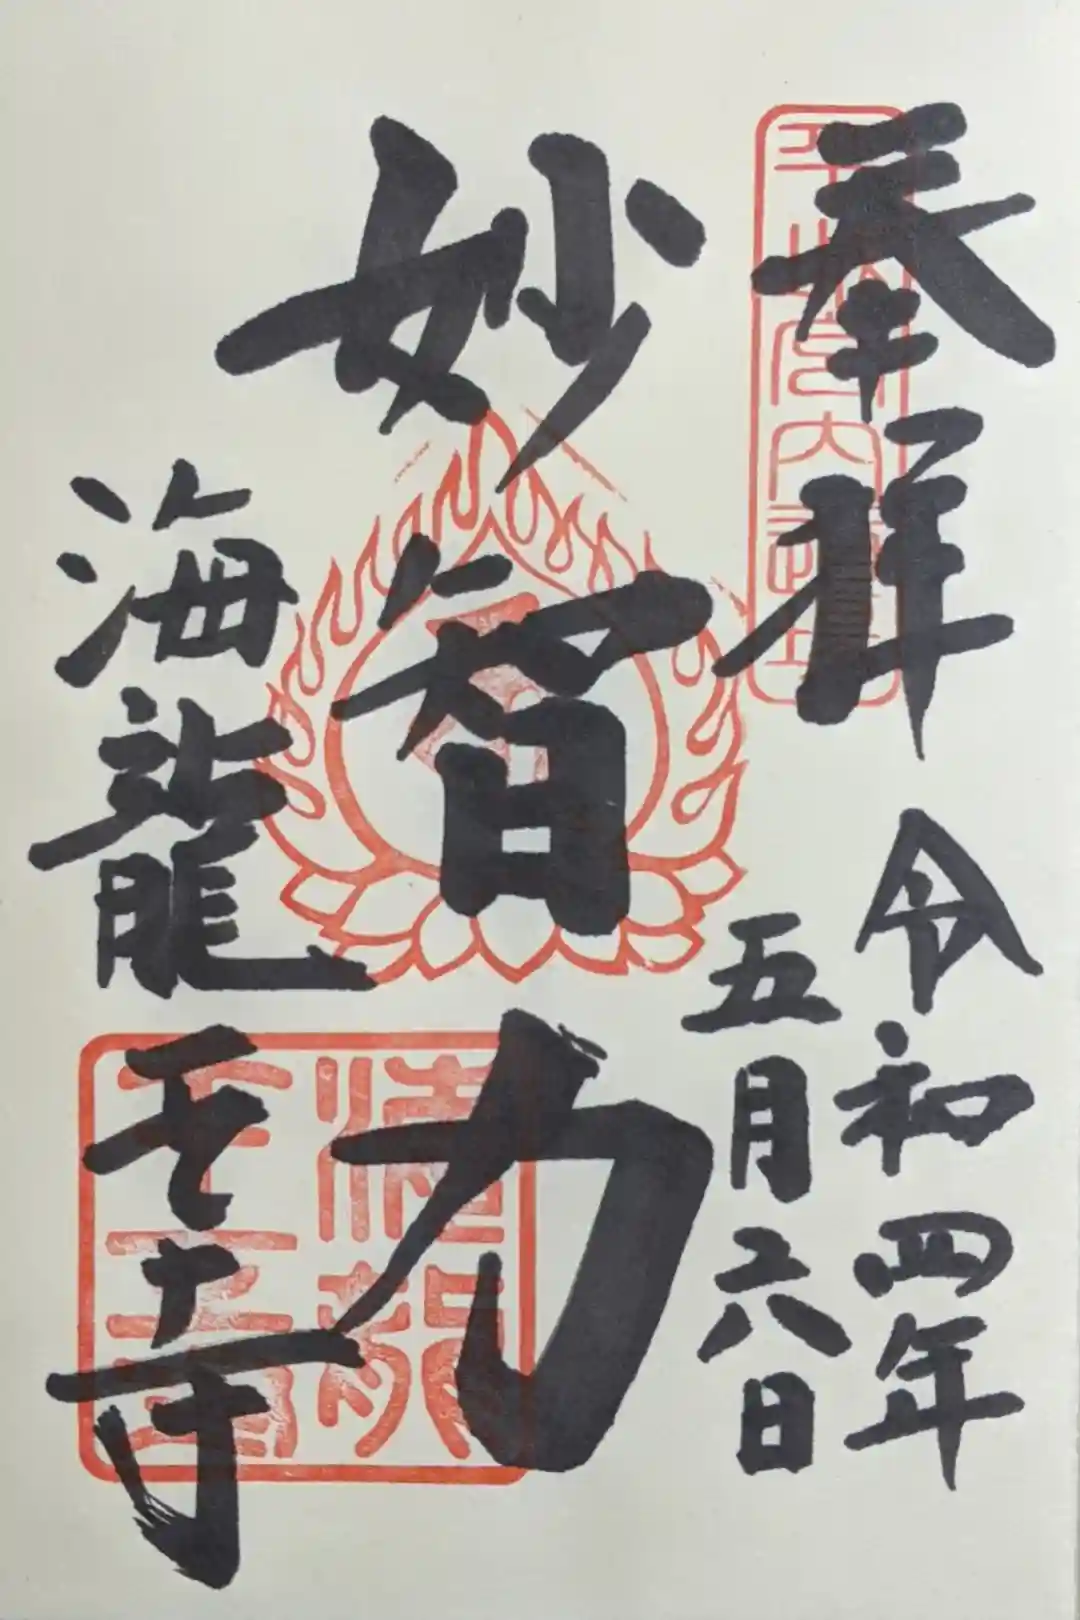 奉拝
令和四年
五月六日
妙智力
海龍王寺